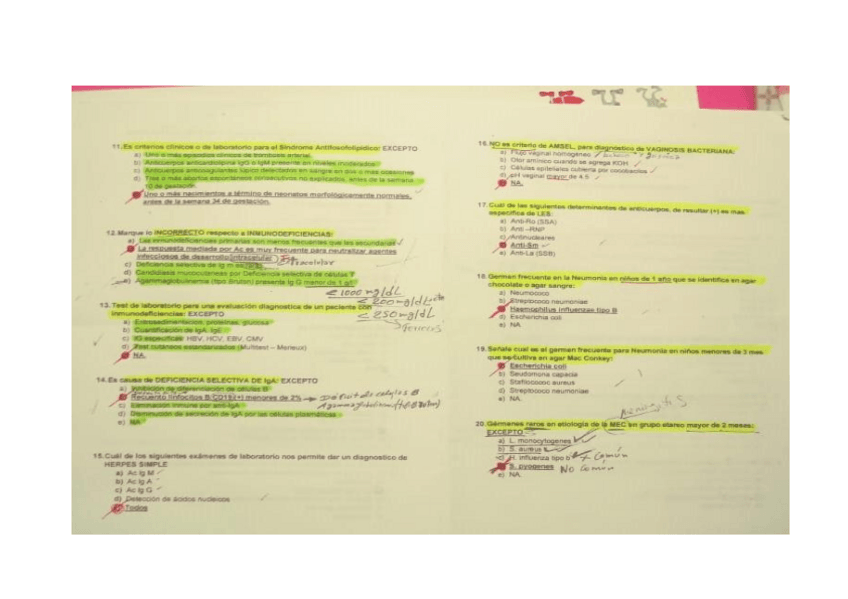 11. Es criterios clínicos o de laboratorio para el Síndrome Antifosfolipídico: EXCEPTO
a) Uno o más episodios clínicos de trombosis arterial.
b) Anticuerpos anticardiolipina IgG o IgM presente en niveles moderados.
c) Anticuerpos anticoagulantes lúpico detectados en sangre en dos o mas ocasiones
d) Tres o más abortos espontáneos consecutivos no explicados, antes de la semana
10 de gestación.
Uno o más nacimientos a término de neonatos morfológicamente normales,
antes de la semana 34 de gestación.
12. Marque lo INCORRECTO respecto a INMUNODEFICIENCIAS:
a) Las inmunodeficiencias primarias son menos frecuentes que las secundarias
La respuesta mediada por Ac es muy frecuente para neutralizar agentes
infecciosos de desarrollo intracelular
c) Deficiencia selectiva de Ig m es
d) Candidiasis mucocutaneas por Deficiencia selectiva de células T
Agammaglobulinemia (tipo Bruton) presenta Ig G menor de 1 g/l
≤ 1000 mg/dL
≤ 200 mg/dL
< 250 mg/dL
13. Test de laboratorio para una evaluación diagnostica de un paciente con
inmunodeficiencias: EXCEPTO
a) Eritrosedimentación, proteinas, glucosa
b) Cuantificación de IgA, IgE
c) IG especificas: HBV, HCV, EBV, CMV
d) Test cutáneos estandarizados (Multitest – Merieux)
NA.
14. Es causa de DEFICIENCIA SELECTIVA DE IgA: EXCEPTO
a) Inhibición de diferenciación de células B
Recuento linfocitos B:CD19(+) menores de 2% → Déficit de celulas B
Agammaglobulinemia
c) Eliminación inmune por anti-IgA
d) Disminución de secreción de IgA por las células plasmáticas
e) NA
15. Cuál de los siguientes exámenes de laboratorio nos permite dar un diagnostico de
HERPES SIMPLE
a) Ac Ig M
b) Ac Ig A
c) Ac Ig G
d) Detección de ácidos nucleicos
Todos
16. NO es criterio de AMSEL, para diagnóstico de VAGINOSIS BACTERIANA:
a) Flujo vaginal homogéneo
b) Olor amínico cuando se agrega KOH
c) Células epiteliales cubierta por cocobacilos
d) pH vaginal mayor de 4.5
NA.
17. Cuál de las siguientes determinantes de anticuerpos, de resultar (+) es mas
especifica de LES:
a) Anti-Ro (SSA)
b) Anti –RNP
c) Antinucleares
Anti-Sm
e) Anti-La (SSB)
18. Germen frecuente en la Neumonía en niños de 1 año que se identifica en agar
chocolate o agar sangre:
a) Neumococo
b) Streptococo neumoniae
Haemophilus influenzae tipo B
d) Escherichia coli
e) NA
19. Señale cuál es el germen frecuente para Neumonía en niños menores de 3 mes
que se cultiva en agar Mac Conkey:
Escherichia coli
b) Seudomona cepacia
c) Stafilococo aureus
d) Streptococo neumoniae
e) NA.
Meningitis
20. Gérmenes raros en etiología de la MEC en grupo etareo mayor de 2 meses:
EXCEPTO
a) L. monocytogenes
b) S. aureus
H. influenza tipo b + común
S. pyogenes No común
e) NA